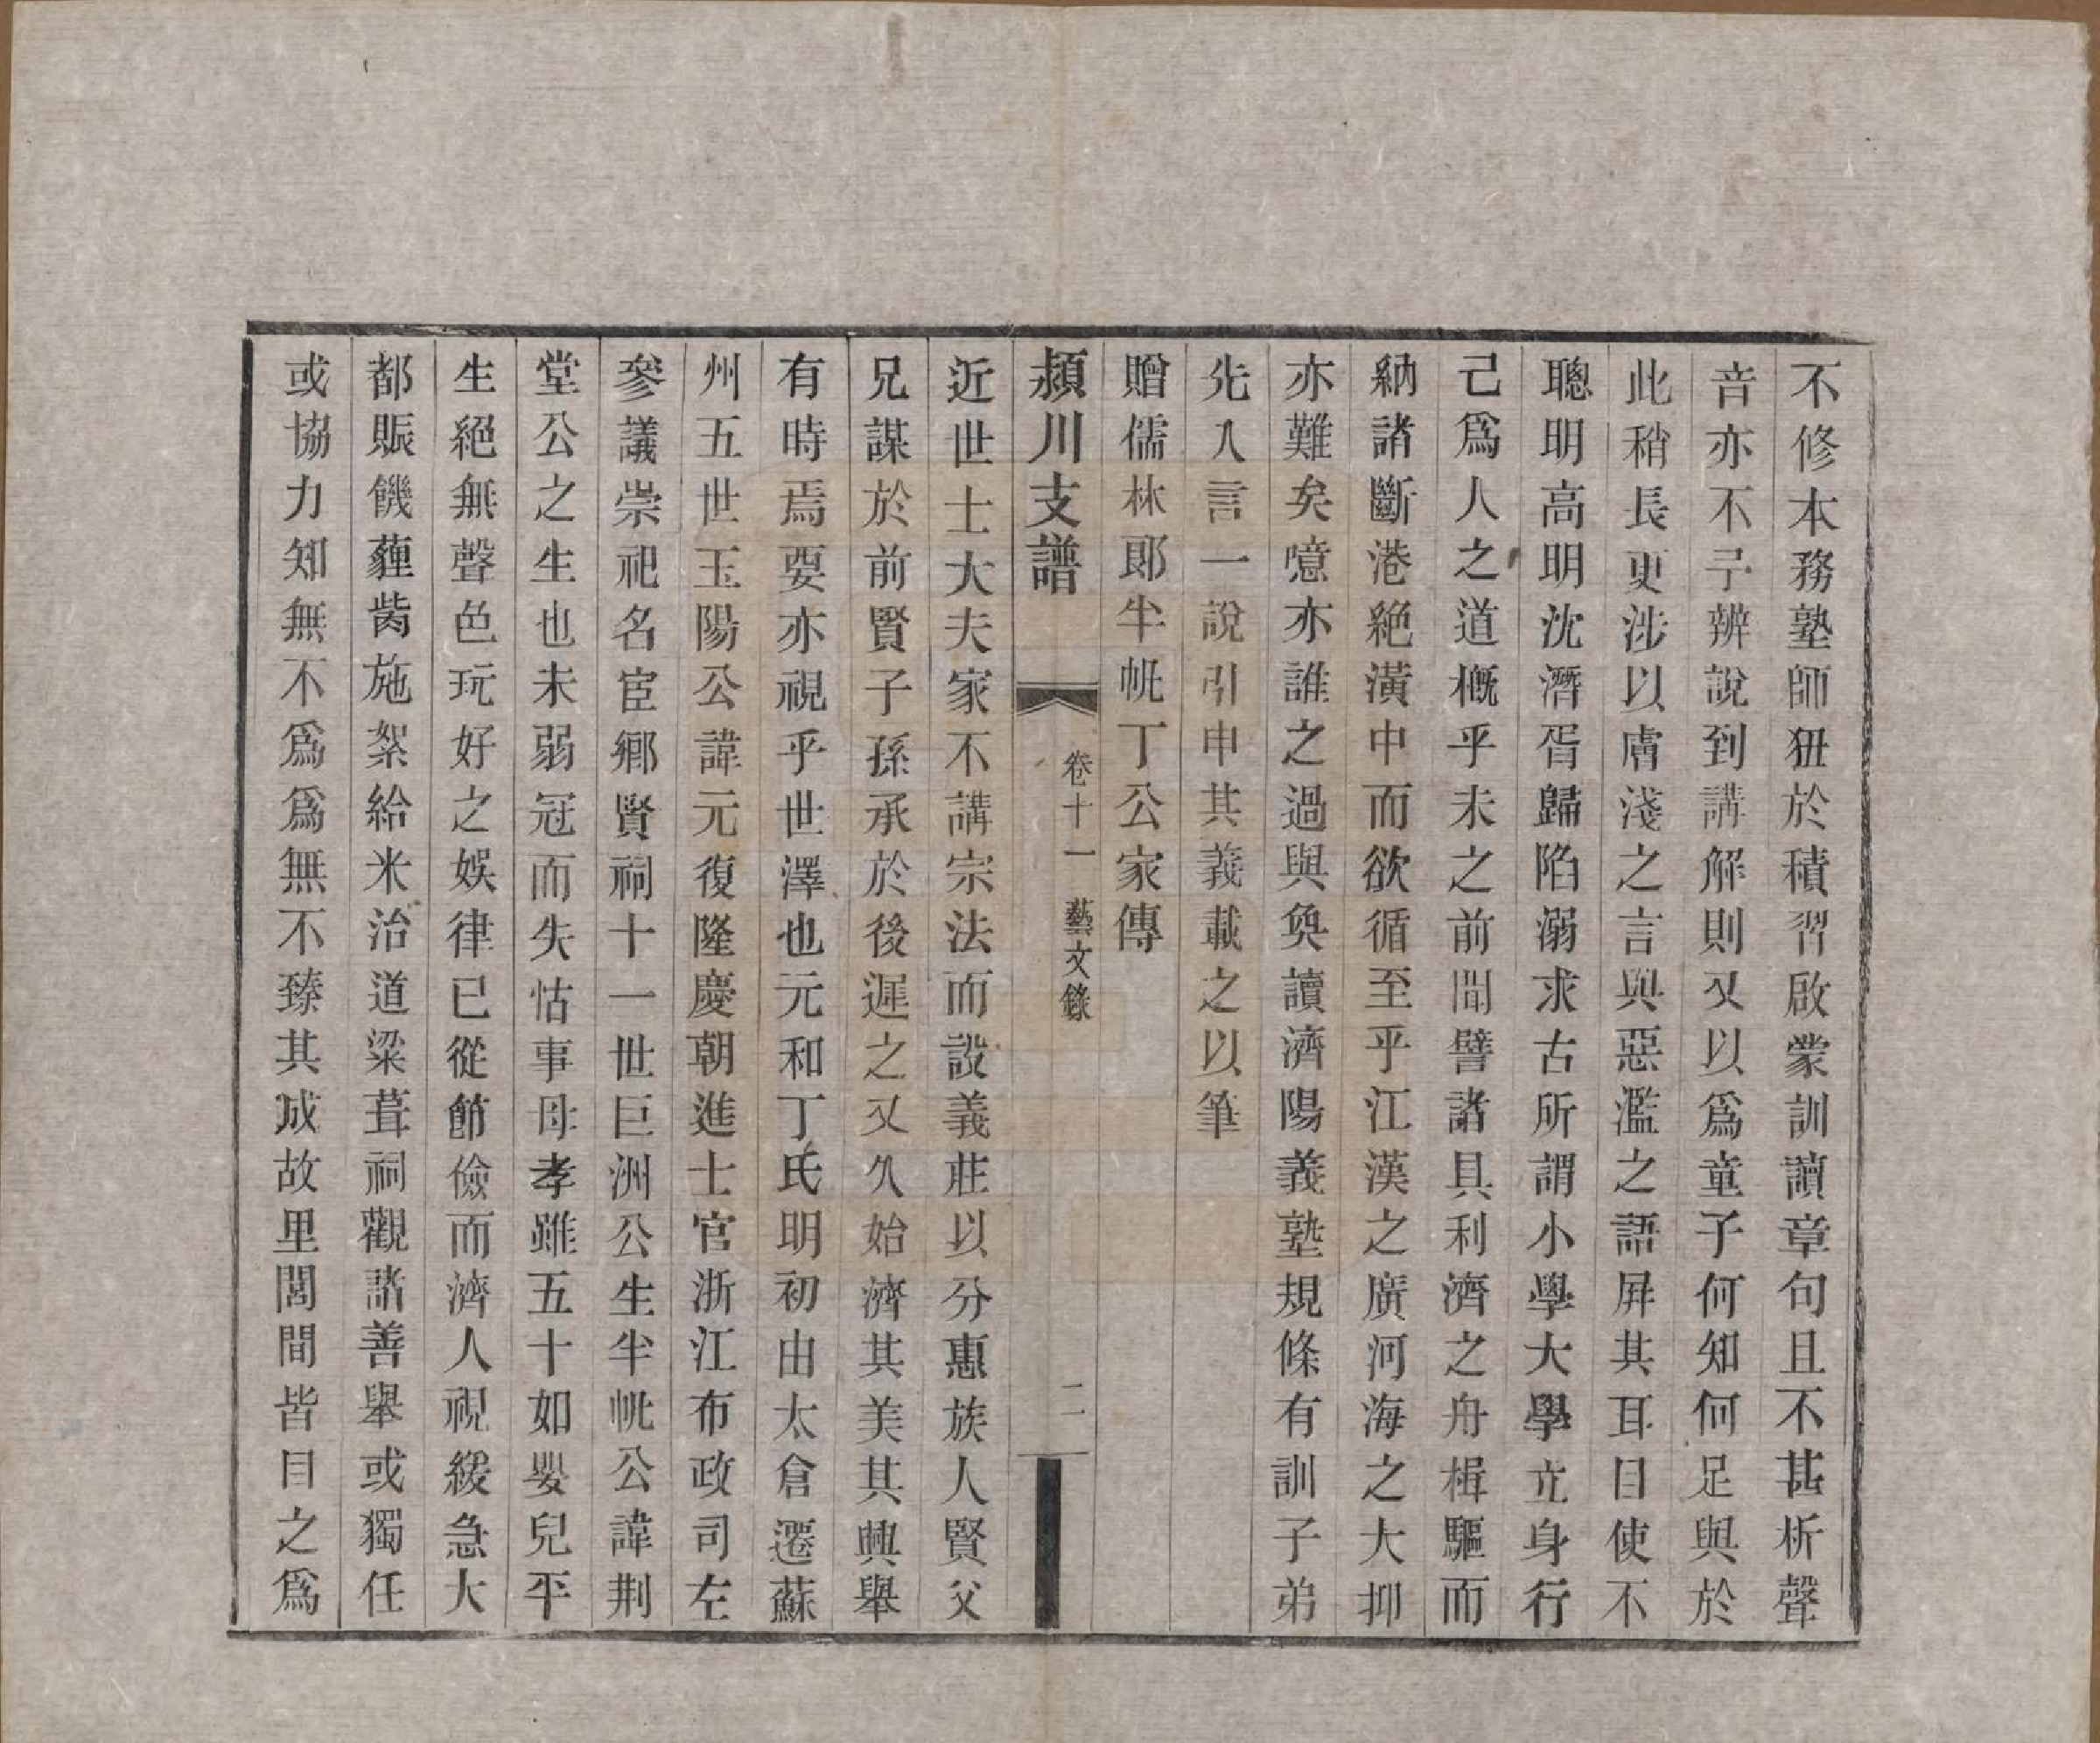 不修本務塾師狃於積習啟蒙訓讀章句且不甚析聲
音亦不孑辨說到講解則又以爲童子何知何足與於
此稍長更涉以膚淺之言與惡濫之語屏其耳目使不
聰明高明沈潛胥歸陷溺求古所謂小學大學立身行
己爲人之道槪乎未之前聞譬諸具利濟之舟楫驅而
納諸斷港絕潢中而欲循至乎江漢之廣河海之大抑
亦難矣噫亦誰之過與奐讀濟陽義塾規條有訓子弟
先入言一說引申其義載之以筆
贈儒林郎半帆丁公家傳
潁川支譜 卷十一 藝文錄 二
近世士大夫家不講宗法而設義莊以分惠族人賢父
兄謀於前賢子孫承於後遲之又久始濟其美其興舉
有時焉要亦視乎世澤也元和丁氏明初由太倉遷蘇
州五世玉陽公諱元復隆慶朝進士官浙江布政司左
參議崇祀名宦鄉賢祠十一世巨洲公生半帆公諱荆
堂公之生也未弱冠而失怙事母孝雖五十如嬰兒平
生絕無聲色玩好之娛律已從節儉而濟人視緩急大
都賑饑薶胔施絮給米治道梁葺祠觀諸善舉或獨任
或協力知無不爲爲無不臻其成故里閭間皆目之爲